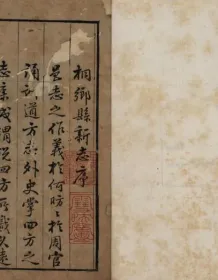 桐鄉縣新志序
邑志之作義於何昉:於周官
誦訓道方志外史掌四方之
志集或謂說四方所識久遠